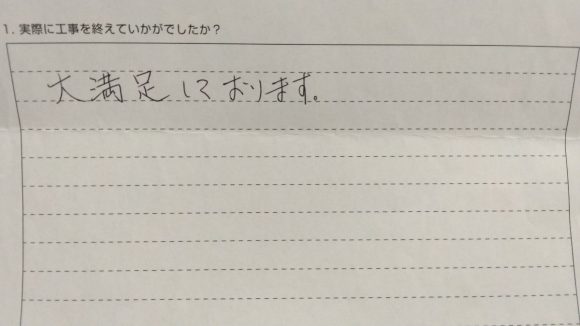 1. 実際に工事を終えていかがでしたか？
大満足しております。